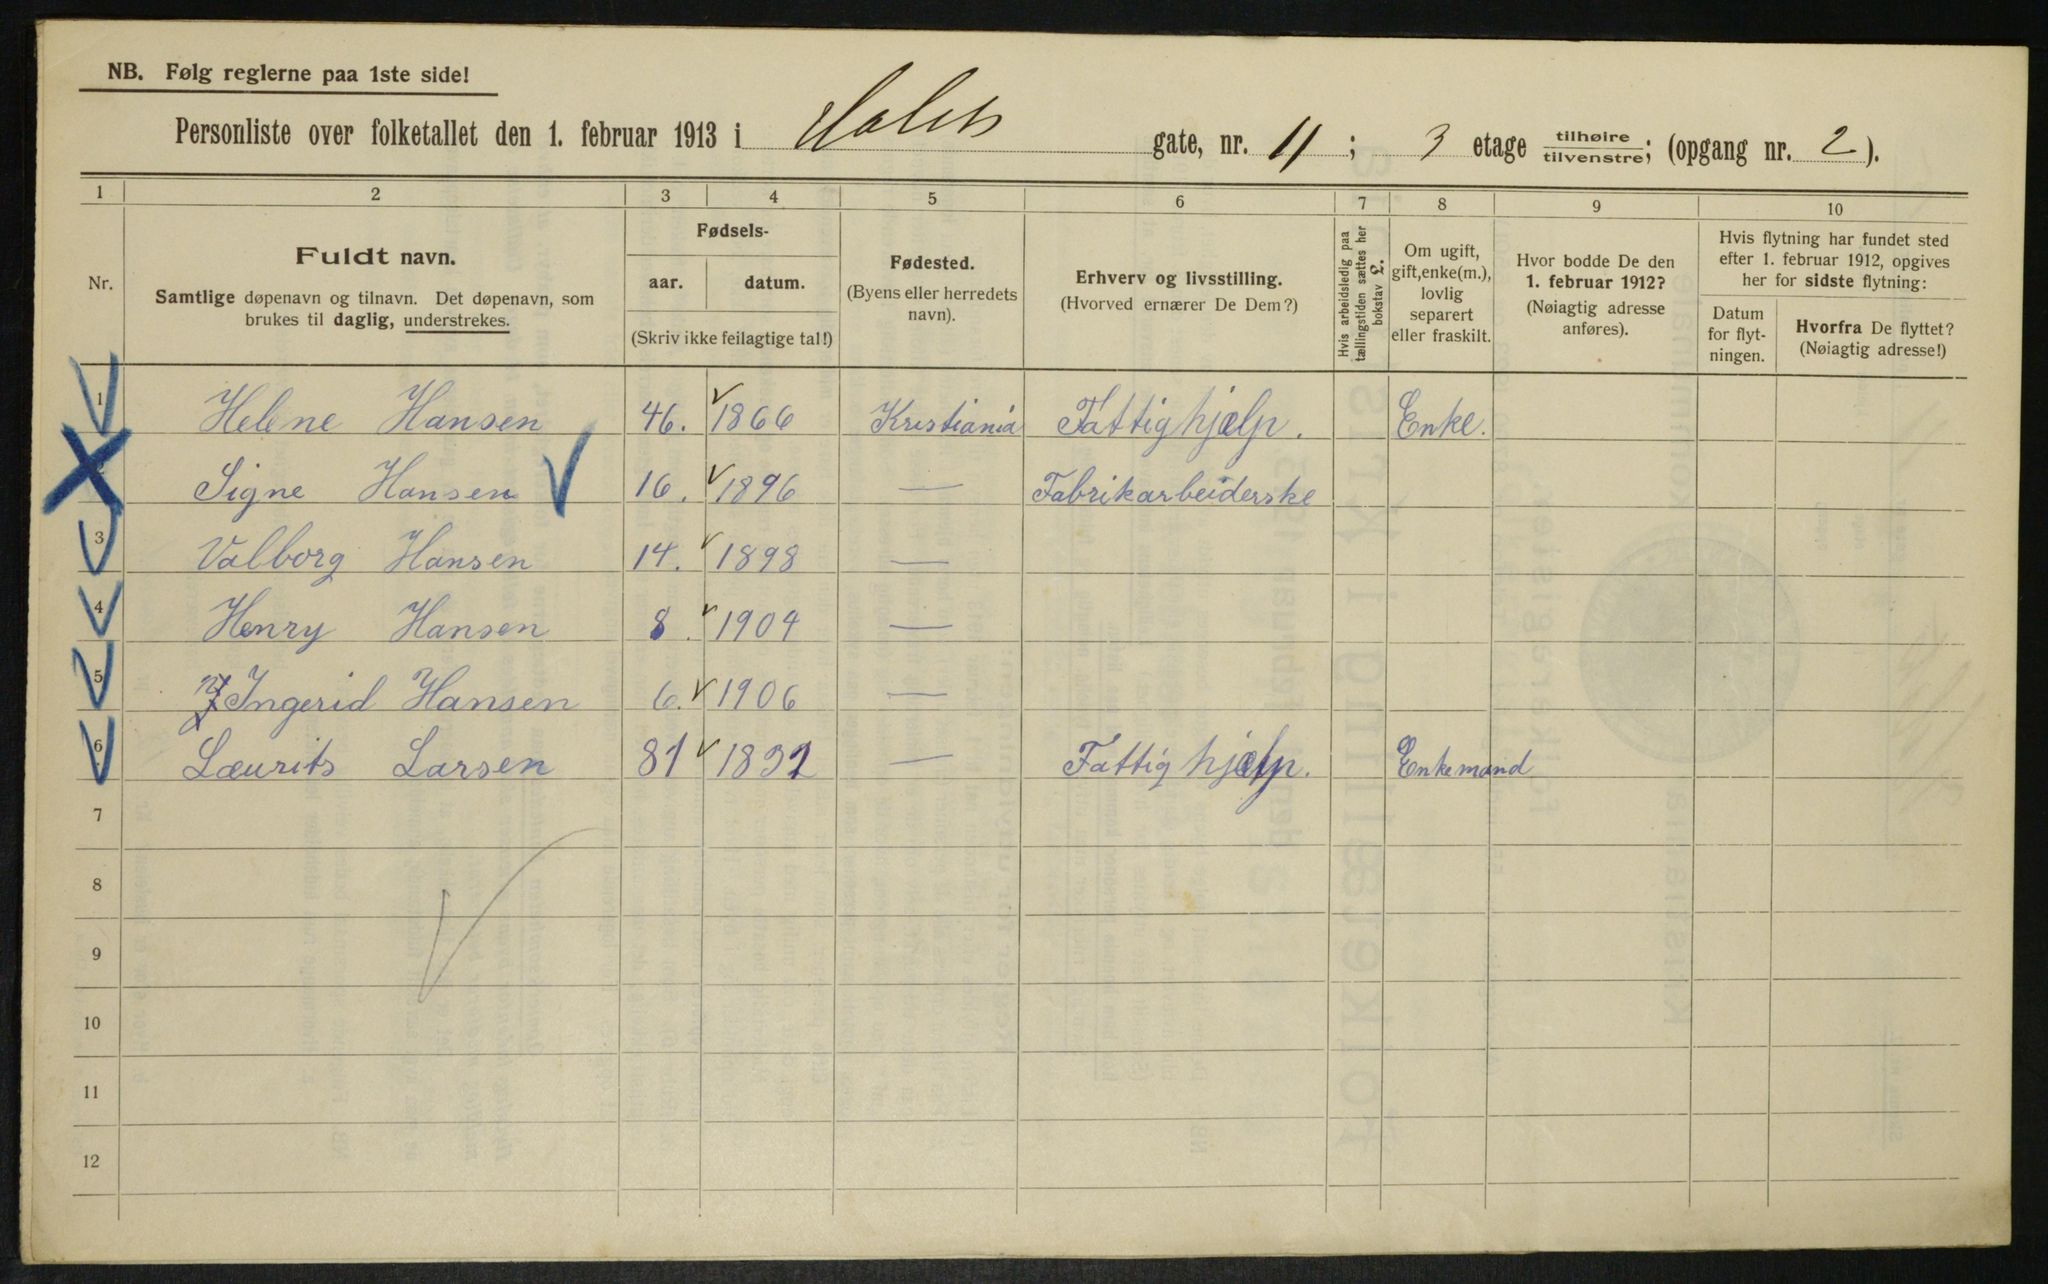 NB. Følg reglerne paa 1ste side!
Personliste over folketallet den 1. februar 1913 i gate, nr. 11; 3 etage tilhøire tilvenstre; (opgang nr. 2).
1 2 3 4 5 6 7 8 9 10
Nr.
Fuldt navn.
Samtlige døpenavn og tilnavn. Det døpenavn, som
brukes til daglig, understrekes.
Fødsels-
aar. datum.
(Skriv ikke feilagtige tal!)
Fødested.
(Byens eller herredets
navn).
Erhverv og livsstilling.
(Hvorved ernærer De Dem?)
Hvis arbeidsledig paa
tællingstiden sættes her
bokstav L.
Om ugift,
gift, enke(m.),
lovlig
separert
eller fraskilt.
Hvor bodde De den
1. februar 1912?
(Nøiagtig adresse
anføres).
Hvis flytning har fundet sted
efter 1. februar 1912, opgives
her for sidste flytning:
Datum
for flyt-
ningen.
Hvorfra De flyttet?
(Nøiagtig adresse!)
1 Helene Hansen 46. 1866 Kristiania Fattighjælp. Enke.
2 Signe Hansen 16. 1896 — Fabrikarbeiderske
3 Valborg Hansen 14. 1898 —
4 Henry Hansen 8. 1904 —
5 Ingerid Hansen 6. 1906 —
6 Laurits Larsen 81 1832 — Fattighjælp. Enkemand
7
8
9
10
11
12